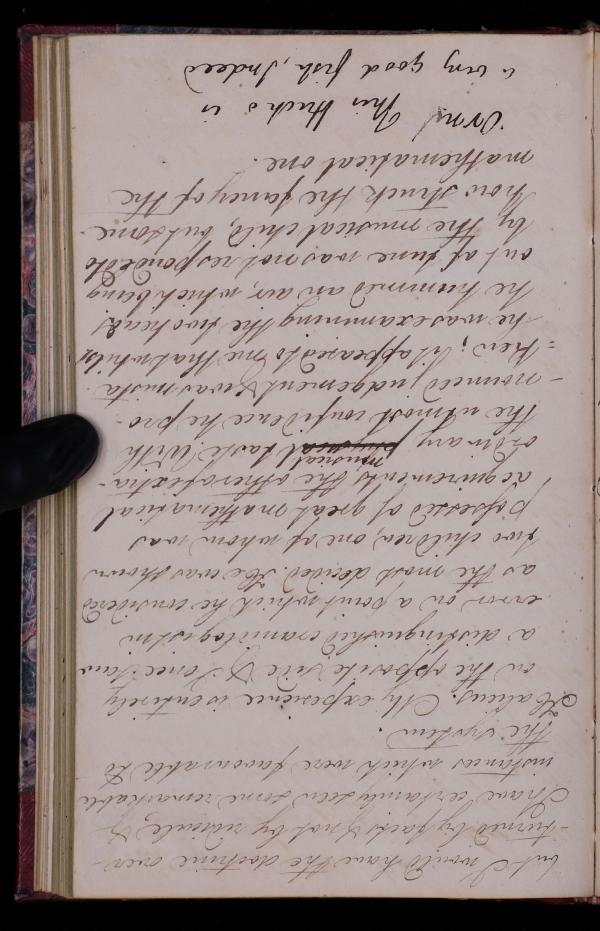 but I would have the doctrine over-
-turned by facts & not by ridicule, &
I have certainly seen some remarkable
instances which were favourable to
the system.
Halieus. My experience is entirely
on the opposite side & I once saw
a distinguished craniologist in
error on a point which he considered
as the most decided. He was shown
two children, one of whom was
possessed of great mathematical
acquirements the other of extra-
-ordinary physical musical taste. With
the utmost confidence he pro-
-nounced judgement & was mista-
=ken; It appeared to me that whilst
he was examining the two heads
he hummed an air, which being
out of tune was not responded to
by the musical child, but some-
how struck the fancy of the
mathematical one.
Orn! This Hucho is
a very good fish, Indeed